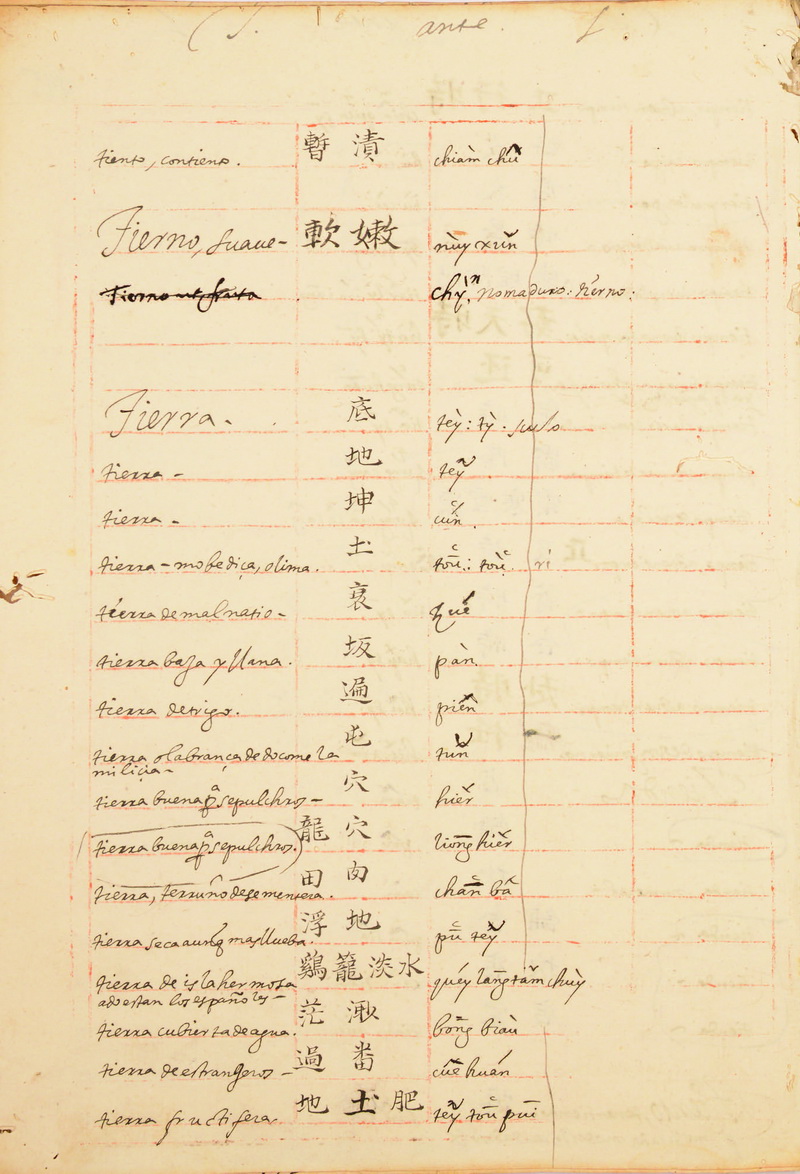 T. ante I.
tiento, contiento. 暫 漬 chiàm chū
Tierno, suaue- 軟 嫩 nùy xùn
Tierno ut fruta chỳn, no maduro: tierno:
Tierra- 底 tèy: tỳ. suelo
tierra- 地 tēy
tierra- 坤 cun.
tierra-mobediça, o lima. 土 toū: toù. ri
tierra de mal natio- 衰
tierra baja y llana. 坂 pàn
tierra de trigo. 遍 pièn
tierra o labrança de do come la 屯 tūn
miliçia-
tierra buena pa sepulchros- 穴 hièr
tierra buena pa sepulchros. 龍 穴 liong hièr
tierra, terruño de sementera. 田 chān bâ
tierra seca aunq mas llueba. 浮 地 pū tēy
tierra de isla hermosa 鷄 籠 淡 水 quéy lāng tām chùy
ado estan los españoles-
tierra cubierta de agua. 茫 bōng biàu
tierra de estrangeros- 過 番 cuè huán
tierra fructifera. 地 土 肥 tēy toū puî